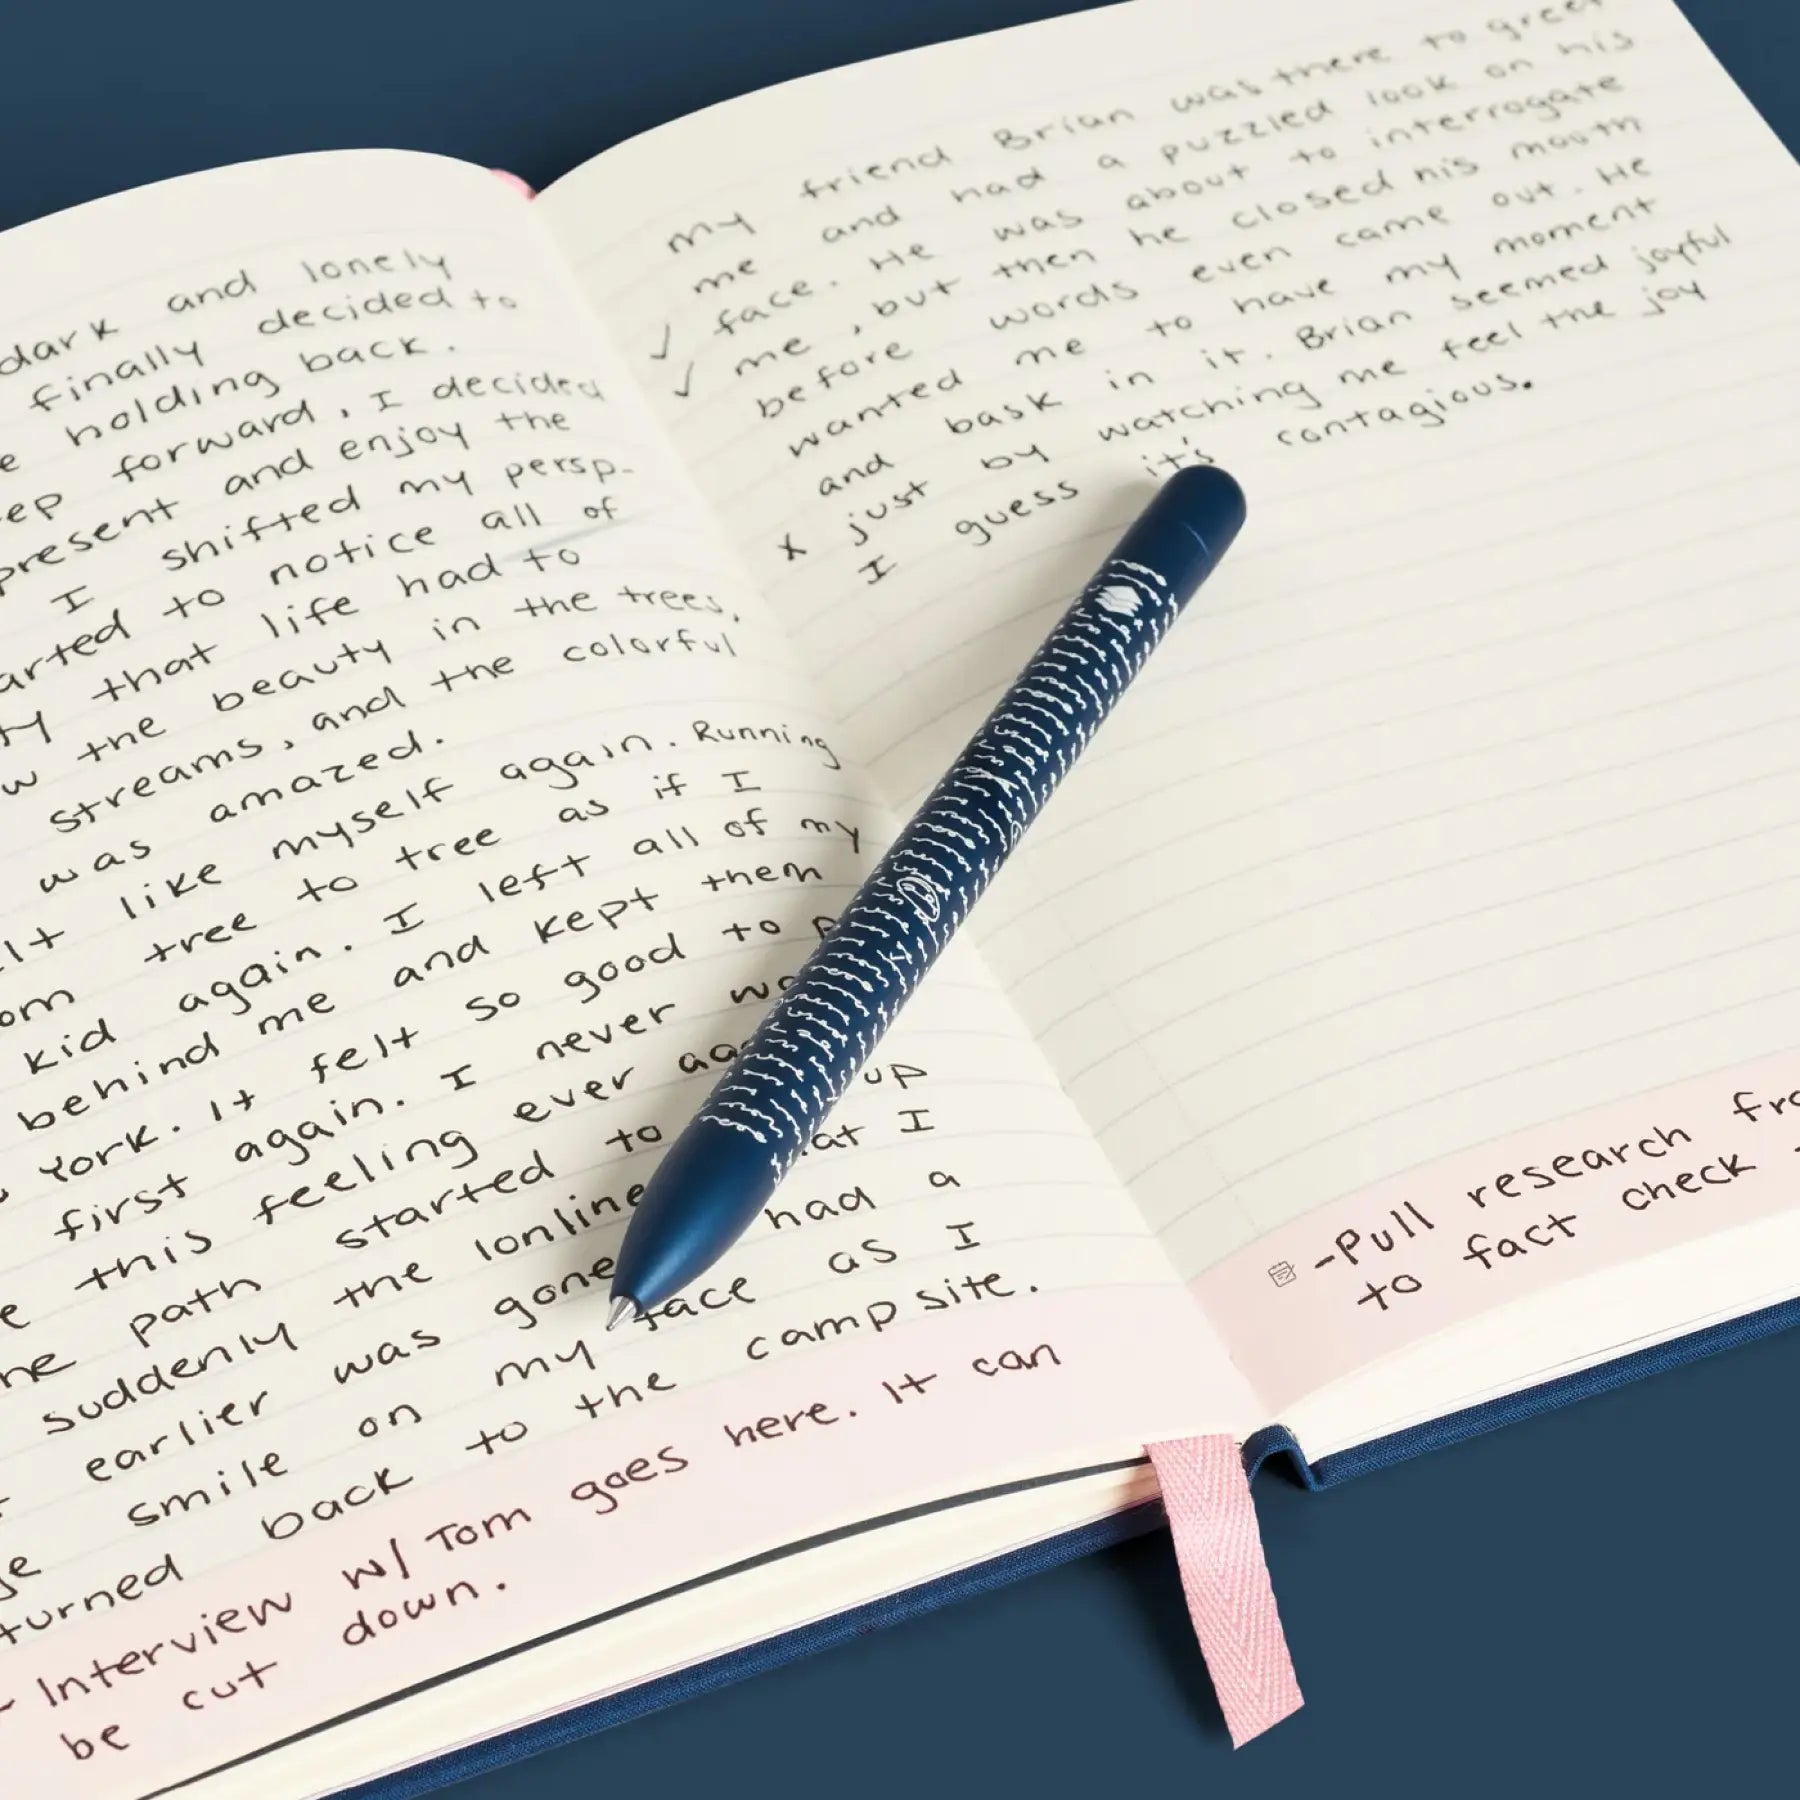 dark and lonely
finally decided to
holding back.
forward, I decided
present and enjoy the
I shifted my persp-
to notice all of
that life had to
the beauty in the trees,
streams, and the colorful
was amazed.
like myself again. Running
tree to tree as if I
kid again. I left all of my
behind me and kept them
York. It felt so good to
first again. I never
this feeling ever
path started to up
suddenly the I
earlier was gone had a
smile on my face as I
turned back to the campsite.
- Interview w/ Tom goes here. It can
be cut down.
my friend Brian was there to greet
me and had a puzzled look on his
✓ face. He was about to interrogate
✓ me, but then he closed his mouth
before words even came out. He
wanted me to have my moment
and bask in it. Brian seemed joyful
x just by watching me feel the joy
I guess it's contagious.
-Pull research
to fact check